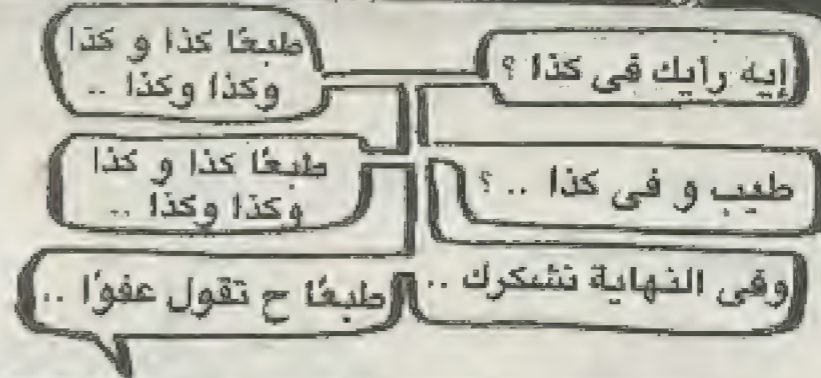 إيه رايك فى كذا ؟
طبعًا كذا و كذا
وكذا وكذا ..
طيب و فى كذا .. ؟
طبعًا كذا و كذا
وكذا وكذا ..
وفى النهاية نشكرك ..
طبعًا ح تقول عفوًا ..